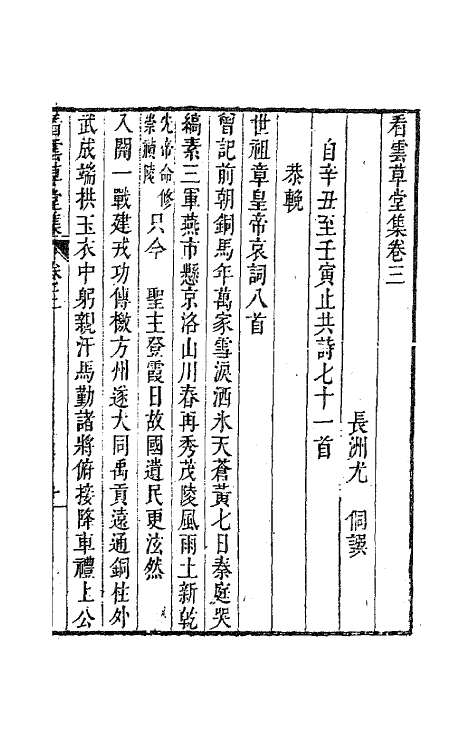 看雲草堂集卷三
長洲尤　侗譔
自辛丑至壬寅止共詩七十一首
恭輓
世祖章皇帝哀詞八首
曾記前朝銅馬年萬家雪淚洒氷天蒼黃七日秦庭哭
縞素三軍燕市懸京洛山川春再秀茂陵風雨土新乾
先帝命修崇禎陵只今　聖主登霞日故國遺民更泫然
入關一戰建戎功傳檄方州遂大同禹貢遠通銅柱外
武成端拱玉衣中躬親汗馬勤諸將俯接降車禮上公
看雲草堂集　卷三　一